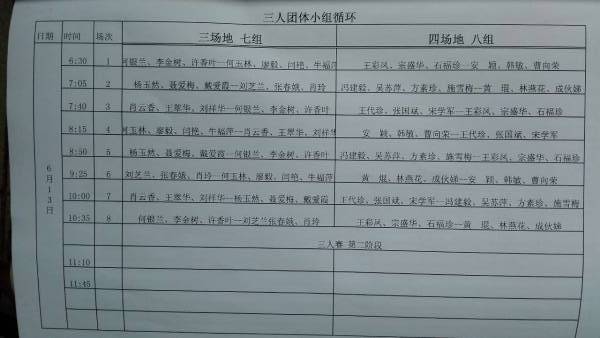 三人团体小组循环
日期 时间 场次 三场地 七组 四场地 八组
6月13日
6:30 1 何银兰、李金树、许香叶—何玉林、廖毅、闫艳、牛福萍 王彩凤、宗盛华、石福珍—安 颖、韩敏、曹向荣
7:05 2 杨玉然、聂爱梅、戴爱霞—刘芝兰、张春娥、肖玲 冯建毅、吴苏萍、方素珍、施雪梅—黄 琨、林燕花、成伙娣
7:40 3 肖云香、王翠华、刘祥华—何银兰、李金树、许香叶 王代珍、张国斌、宋学军—王彩凤、宗盛华、石福珍
8:15 4 何玉林、廖毅、闫艳、牛福萍—肖云香、王翠华、刘祥华 安 颖、韩敏、曹向荣—王代珍、张国斌、宋学军
8:50 5 杨玉然、聂爱梅、戴爱霞—何银兰、李金树、许香叶 冯建毅、吴苏萍、方素珍、施雪梅—王彩凤、宗盛华、石福珍
9:25 6 刘芝兰、张春娥、肖玲—何玉林、廖毅、闫艳、牛福萍 黄 琨、林燕花、成伙娣—安 颖、韩敏、曹向荣
10:00 7 肖云香、王翠华、刘祥华—杨玉然、聂爱梅、戴爱霞 王代珍、张国斌、宋学军—冯建毅、吴苏萍、方素珍、施雪梅
10:35 8 何银兰、李金树、许香叶—刘芝兰张春娥、肖玲 王彩凤、宗盛华、石福珍—黄 琨、林燕花、成伙娣
三人赛 第二阶段
11:10
11:45